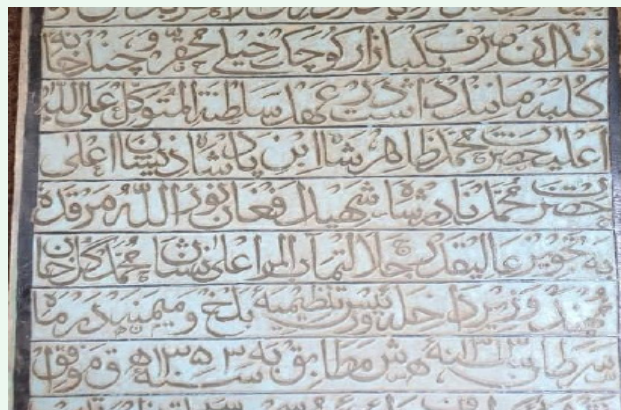 زیدان صرف یکبازار کوچک خیلی محقر و چند خانه
کلبه مانند داشت در عهد سلطنة المتوکل علی الله
اعلیحضرت محمد ظاهر شاه ابن پادشاه ذیشان اعلی
حضرت محمد نادر شاه شهید افغان نور الله مرقده
به تجویز عالیقدر جلالتمآب والا نشان محمد گل خان
مهمند وزیر داخله و رئیس تنظیمیه بلخ و میمنه در ماه
سرطان سنه ۱۳۱۳ ه ش مطابق به سنه ۱۳۵۳ ه ق موفق